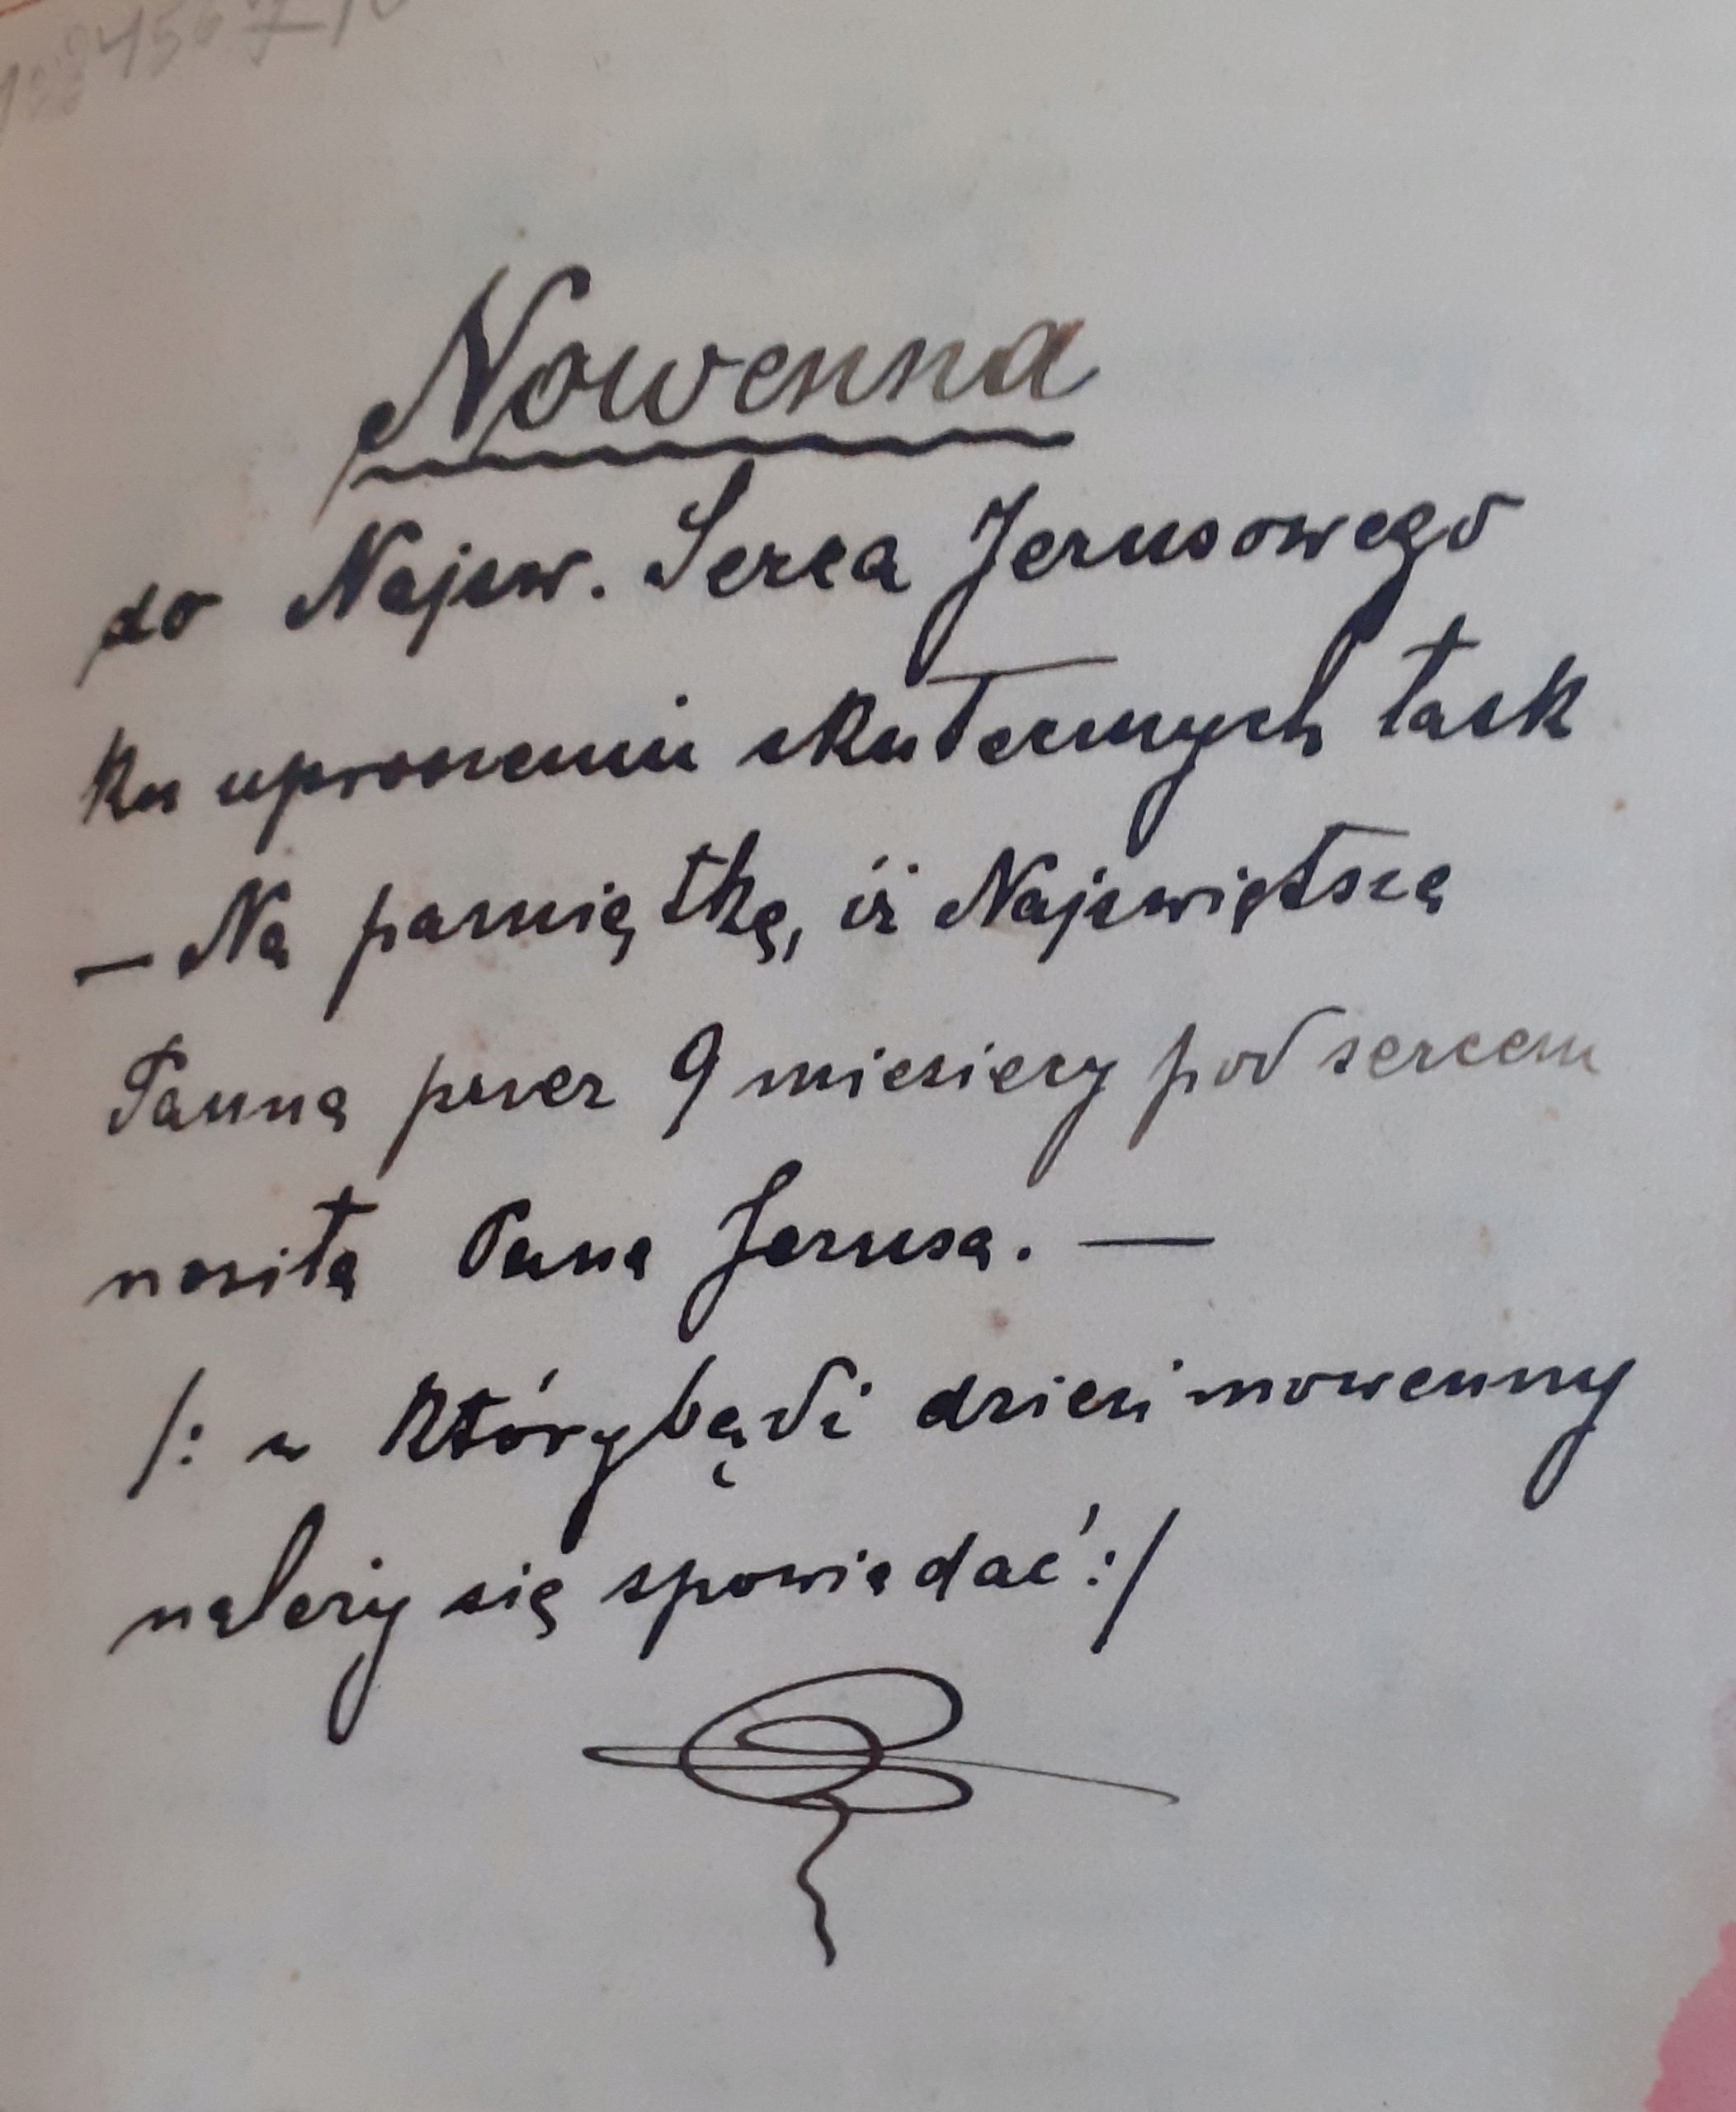 Nowenna
do Najsw. Serca Jezusowego
ku uproszeniu skutecznych łask
— Na pamiątkę, iż Najświętsza
Panna przez 9 miesięcy pod sercem
nosiła Pana Jezusa. —
/: w którybądź dzień nowenny
należy się spowiadać :/